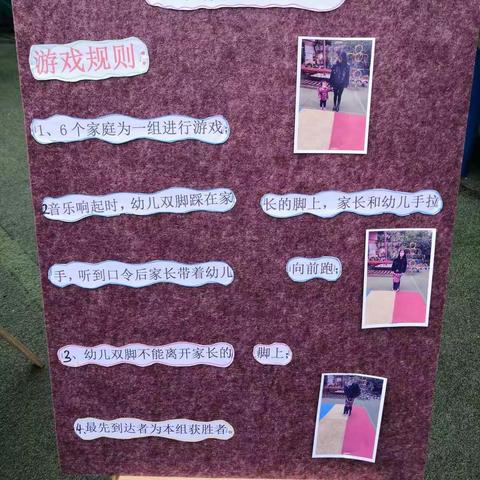 游戏规则:
1、6个家庭为一组进行游戏;
2音乐响起时,幼儿双脚踩在家长的脚上,家长和幼儿手拉
手,听到口令后家长带着幼儿向前跑;
3、幼儿双脚不能离开家长的脚上;
4.最先到达者为本组获胜者。